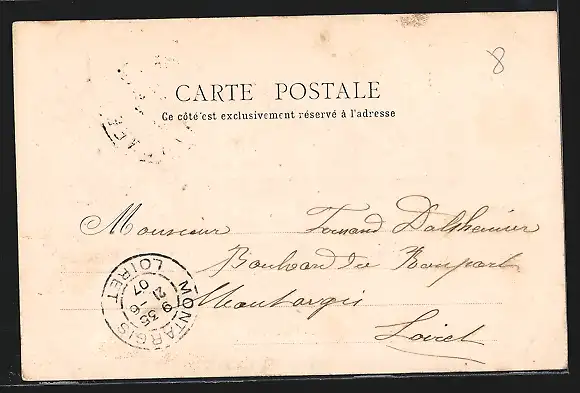 8
CARTE POSTALE
Ce côté est exclusivement réservé à l'adresse
Monsieur Fernand Dalsheimer
Boulvard du Rempart
Montargis
Loiret
MONTARGIS
LOIRET
9 35
21 - 6
07